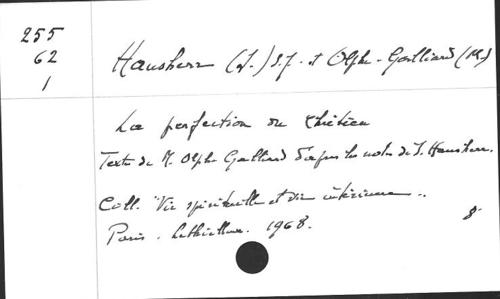 255
62
1
Hausherr (I.) S.J. et Olphe-Galliard (M.)
La perfection du Chrétien
Texte de M. Olphe Galliard d'après les notes de I. Hausherr.
Coll. "Vie spirituelle et vie intérieure"..
Paris. Lethielleux. 1968. 8°